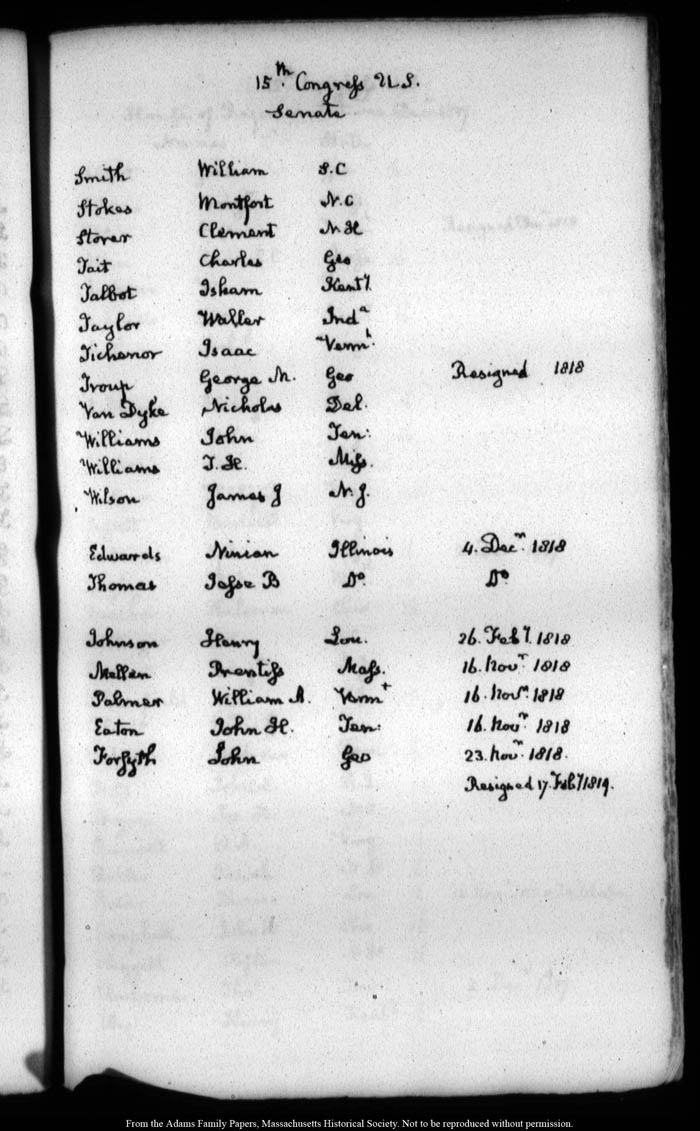 15th Congress U.S.
Senate
Smith William S.C
Stokes Montfort N.C
Storer Clement N.H
Tait Charles Geo
Talbot Isham Kenty.
Taylor Waller Inda
Tichenor Isaac Vermt.
Troup George M. Geo Resigned 1818
Van Dyke Nicholas Del.
Williams John Ten:
Williams T. H. Miss.
Wilson James J N.J.
Edwards Ninian Illinois 4. Decr. 1818
Thomas Jesse B Do. Do
Johnson Henry Lou. 26. Feby. 1818
Mellen Prentiss Mass. 16. Novr. 1818
Palmer William A. Vermt 16. Novr. 1818
Eaton John H. Ten: 16. Novr. 1818
Forsyth John Geo 23. Novr. 1818.
Resigned 17. Feby 1819.
From the Adams Family Papers, Massachusetts Historical Society. Not to be reproduced without permission.